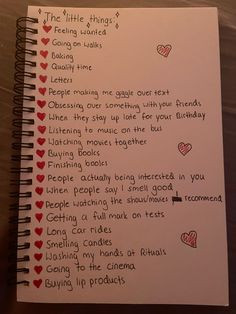 The little things:
Feeling wanted
Going on walks
Baking
Quality time
Letters
People making me giggle over text
Obsessing over something with your friends
When they stay up late for your Birthday
Listening to music on the bus
Watching movies together
Buying books
Finishing books
People actually being interested in you
When people say I smell good
People watching the shows/movies I recommend
Getting a full mark on tests
Long car rides
Smelling candles
Washing my hands at Rituals
Going to the cinema
Buying lip products